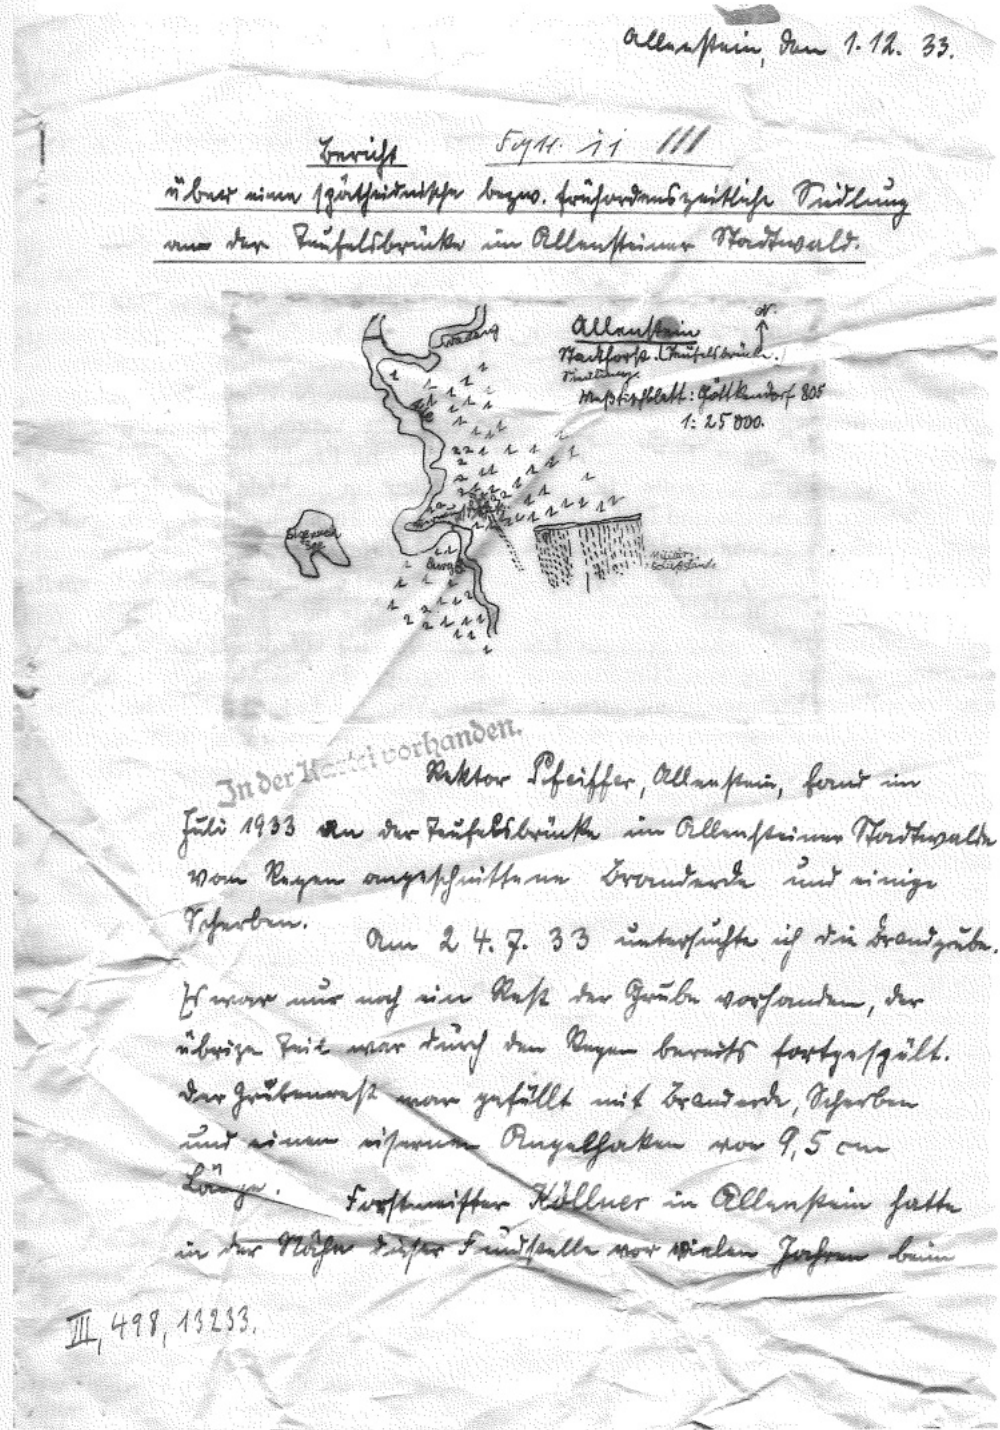 Allenstein, den 1.12.33.
Bericht
III
über eine spätheidnische bezw. frühordenszeitliche Siedlung
an der Teufelsbrücke im Allensteiner Stadtwald.
Wadang
N.
Allenstein
Stadtforst. (Teufelsbrücke.)
Siedlung.
Meßtischblatt: Göttkendorf 805
1:25000.
Alle
See
Burg
Militär-
Schießstände
In der Kartei vorhanden.
Rektor Pfeiffer, Allenstein, fand im
Juli 1933 an der Teufelsbrücke im Allensteiner Stadtwalde
vom Regen angeschnittene Branderde und einige
Scherben.
Am 24.7.33 untersuchte ich die Brandgrube.
Es war nur noch ein Rest der Grube vorhanden, der
übrige Teil war durch den Regen bereits fortgespült.
Der Grubenrest war gefüllt mit Branderde, Scherben
und einem eisernen Angelhaken von 9,5 cm
Länge.
Forstmeister Köllner in Allenstein hatte
in der Nähe dieser Fundstelle vor vielen Jahren beim
III, 498, 13233.